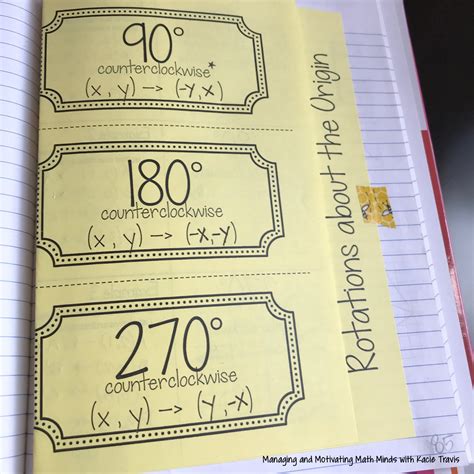 90°
counterclockwise*
(x, y) → (-y, x)
180°
counterclockwise
(x, y) → (-x, -y)
270°
counterclockwise
(x, y) → (y, -x)
Rotations about the Origin
Managing and Motivating Math Minds with Kacie Travis